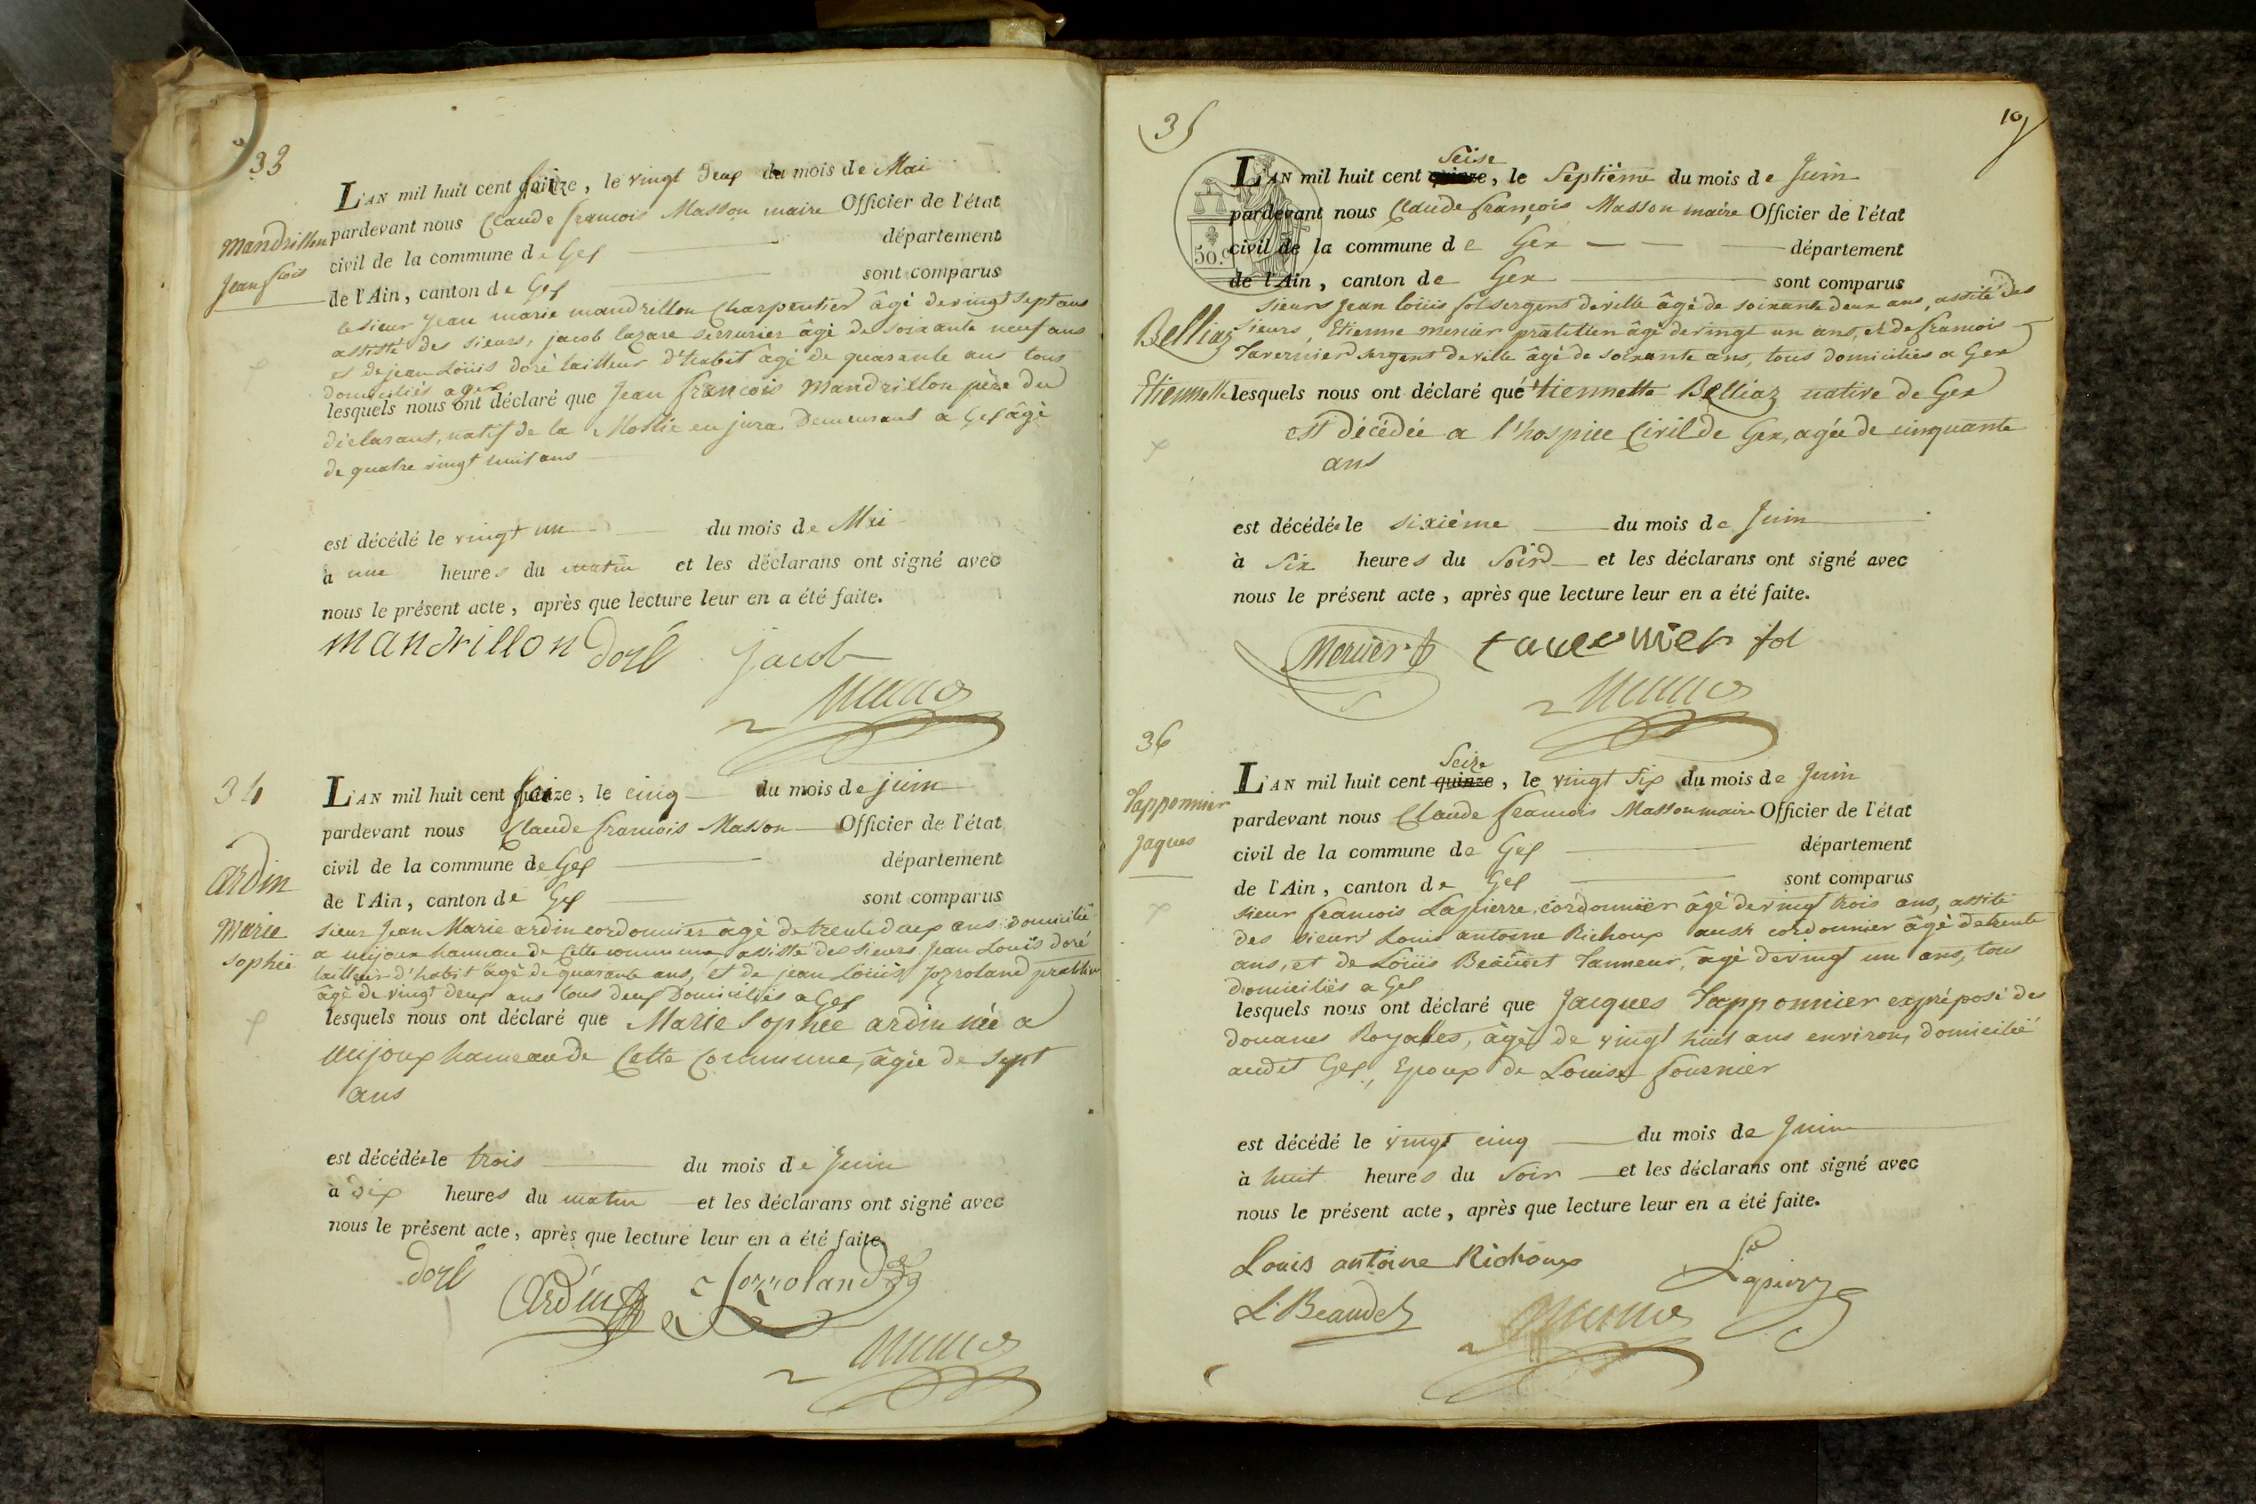 33
Mandrillon
Jean fcois
L'AN mil huit cent seize, le vingt deux du mois de Mai
pardevant nous Claude francois Masson maire Officier de l'état
civil de la commune de Gex département
de l'Ain, canton de Gex sont comparus
le sieur jean marie mandrillon Charpentier âgé de vingt sept ans
assisté des sieurs, jacob lazare serrurier âgé de soixante neuf ans
et de jean Loüis doré tailleur d'habit âgé de quarante ans tous
domiciliés a gex
lesquels nous ont déclaré que Jean françois Mandrillon père du
déclarant, natif de la en jura Demeurant a Gex âgé
de quatre vingt huit ans
est décédé le vingt un du mois de Mai
à une heures du matin et les déclarans ont signé avec
nous le présent acte, après que lecture leur en a été faite.
mandrillon doré jacob
34
ardin
Marie
sophie
L'AN mil huit cent seize, le cinq du mois de juin
pardevant nous Claude francois Masson Officier de l'état
civil de la commune de Gex département
de l'Ain, canton de Gex sont comparus
sieur Jean Marie ardin cordonnier âgé de trente deux ans domicilié
a mijoux hameau de Cette commune assisté des sieurs Jean Louis doré
tailleur d'habit âgé de quarante ans, et de jean Loüis Jozroland
âgé de vingt deux ans tous deux Domiciliés a Gex
lesquels nous ont déclaré que Marie Sophie ardin née a
Mijoux hameau de Cette Commune, âgée de sept
ans
est décédée le trois du mois de Juin
à Dix heures du matin et les déclarans ont signé avec
nous le présent acte, après que lecture leur en a été faite.
doré Ardin Jozroland
10
35
Belliaz
Etiennette
L'AN mil huit cent quinze Seise, le Septième du mois de Juin
pardevant nous Claude françois Masson maire Officier de l'état
civil de la commune de Gex département
de l'Ain, canton de Gex sont comparus
50.c
sieurs Jean loüis fol sergent de ville âgé de soixante deux ans, assité des
sieurs, Etienne Mercier pratitien âgé de vingt un ans, et de francois
Tavernier sergent de ville âgé de soixante ans, tous domiciliés a Gex
lesquels nous ont déclaré qué'tiennette Belliaz native de Gex
est décédée a l'hospice Civil de Gex, agée de cinquante
ans
est décédée le sixième du mois de Juin
à Six heures du Soir et les déclarans ont signé avec
nous le présent acte, après que lecture leur en a été faite.
Mercier tavernier fol
36
Tapponnier
Jaques
L'AN mil huit cent quinze Seize, le vingt six du mois de Juin
pardevant nous Claude francois Masson maire Officier de l'état
civil de la commune de Gex département
de l'Ain, canton de Gex sont comparus
sieur francois Lapierre, cordonnier âgé de vingt trois ans, assité
des sieurs Louis antoine Richoux aussi cordonnier âgé de trente
ans, et de Loüis Beaudet Tanneur, âgé de vingt un ans, tous
domiciliés a Gex
lesquels nous ont déclaré que Jacques Tapponnier expréposé des
douanes Royales, âgé de vingt huit ans environ, domicilié
audit Gex, Epoux de Louise fournier
est décédé le vingt cinq du mois de Juin
à huit heures du Soir et les déclarans ont signé avec
nous le présent acte, après que lecture leur en a été faite.
Louis antoine Richoux Lapierre
L. Beaudet